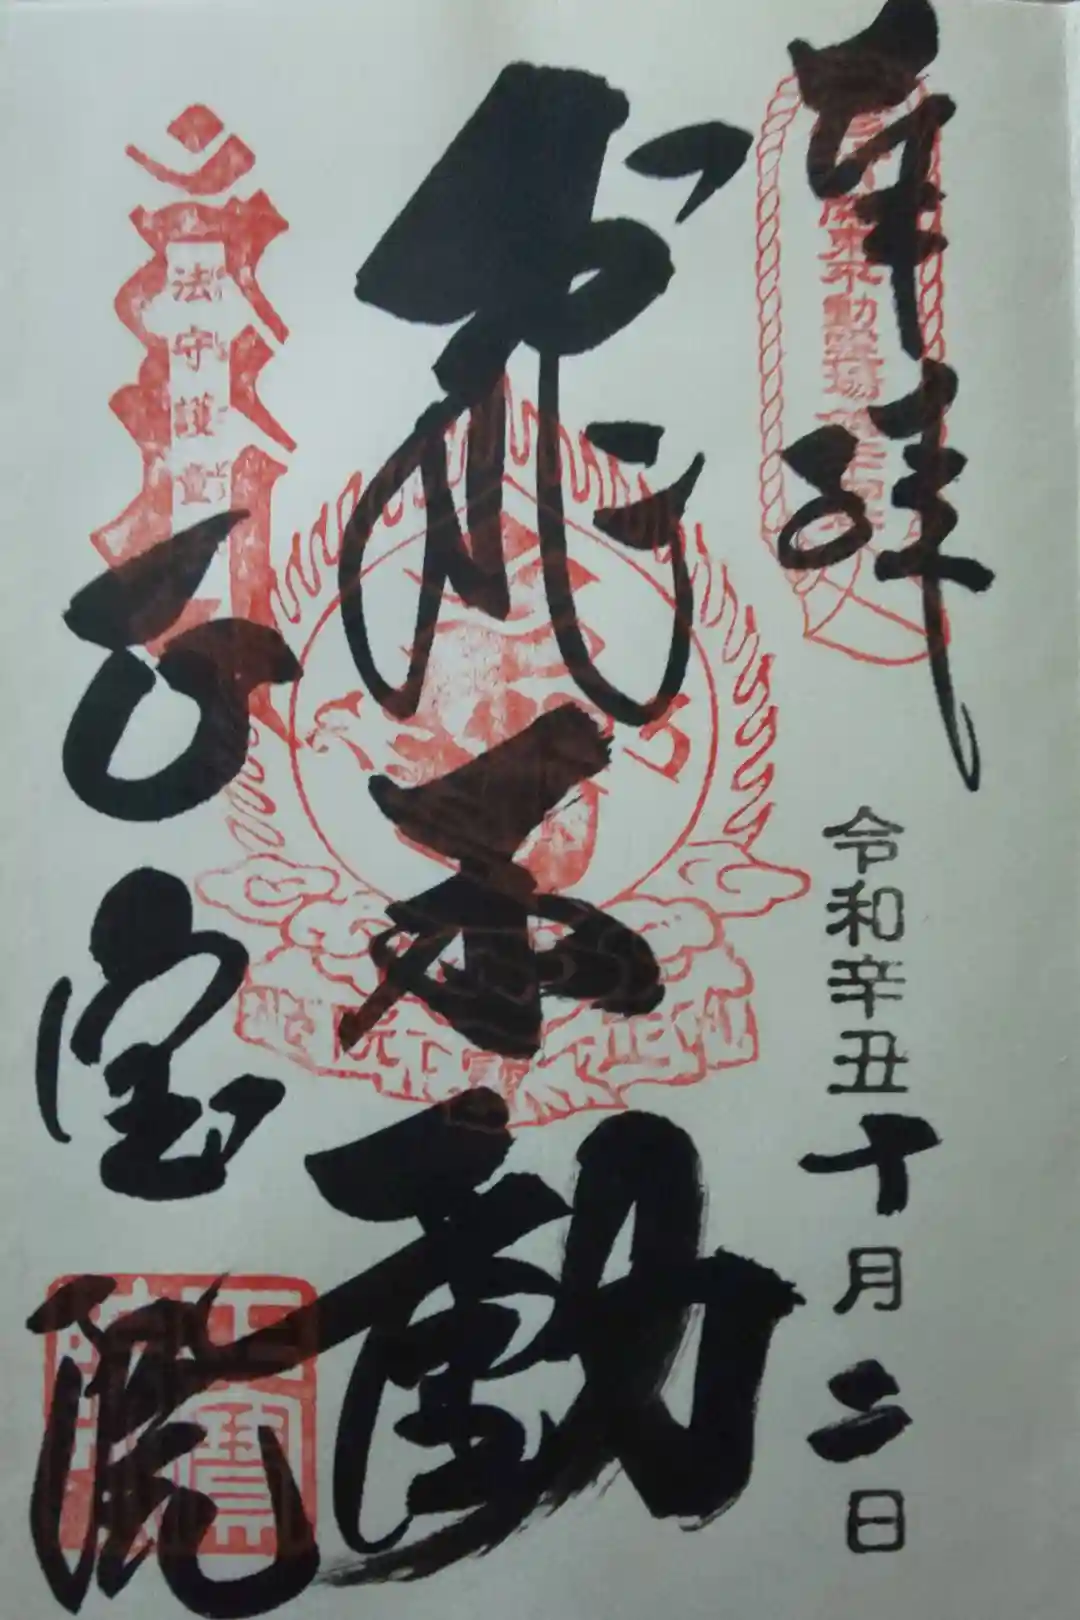 奉拝
東不動霊場
令和辛丑十月二日
飛不動
法守護童
正宝院
正寶院